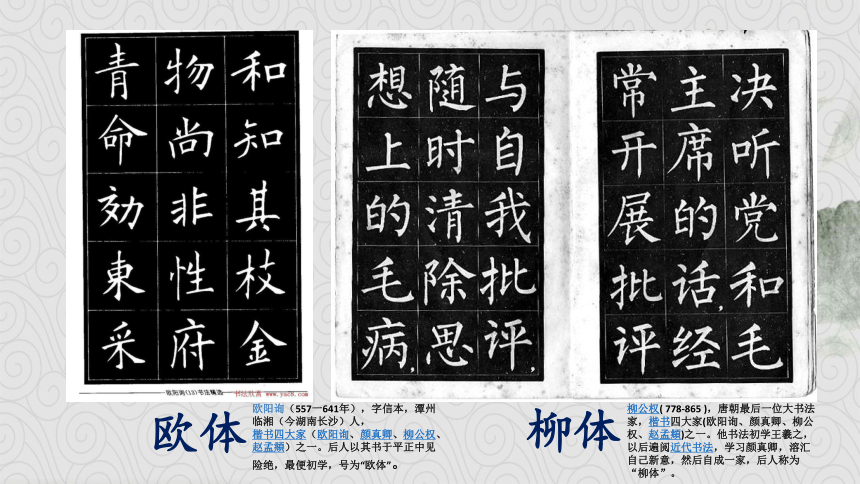 和知其枝金
物尚非性府
青命効東采
决听党和毛
主席的话,经
常开展批评
与自我批评,
随时清除思
想上的毛病,
欧阳询(13)书法精选
书法欣赏 www.yac8.com
欧体
欧阳询（557—641年），字信本，潭州
临湘（今湖南长沙）人，
楷书四大家（欧阳询、颜真卿、柳公权、
赵孟頫）之一。后人以其书于平正中见
险绝，最便初学，号为“欧体”。
柳体
柳公权( 778-865 )，唐朝最后一位大书法
家，楷书四大家(欧阳询、颜真卿、柳公
权、赵孟頫)之一。他书法初学王羲之，
以后遍阅近代书法，学习颜真卿，溶汇
自己新意，然后自成一家，后人称为
“柳体”。